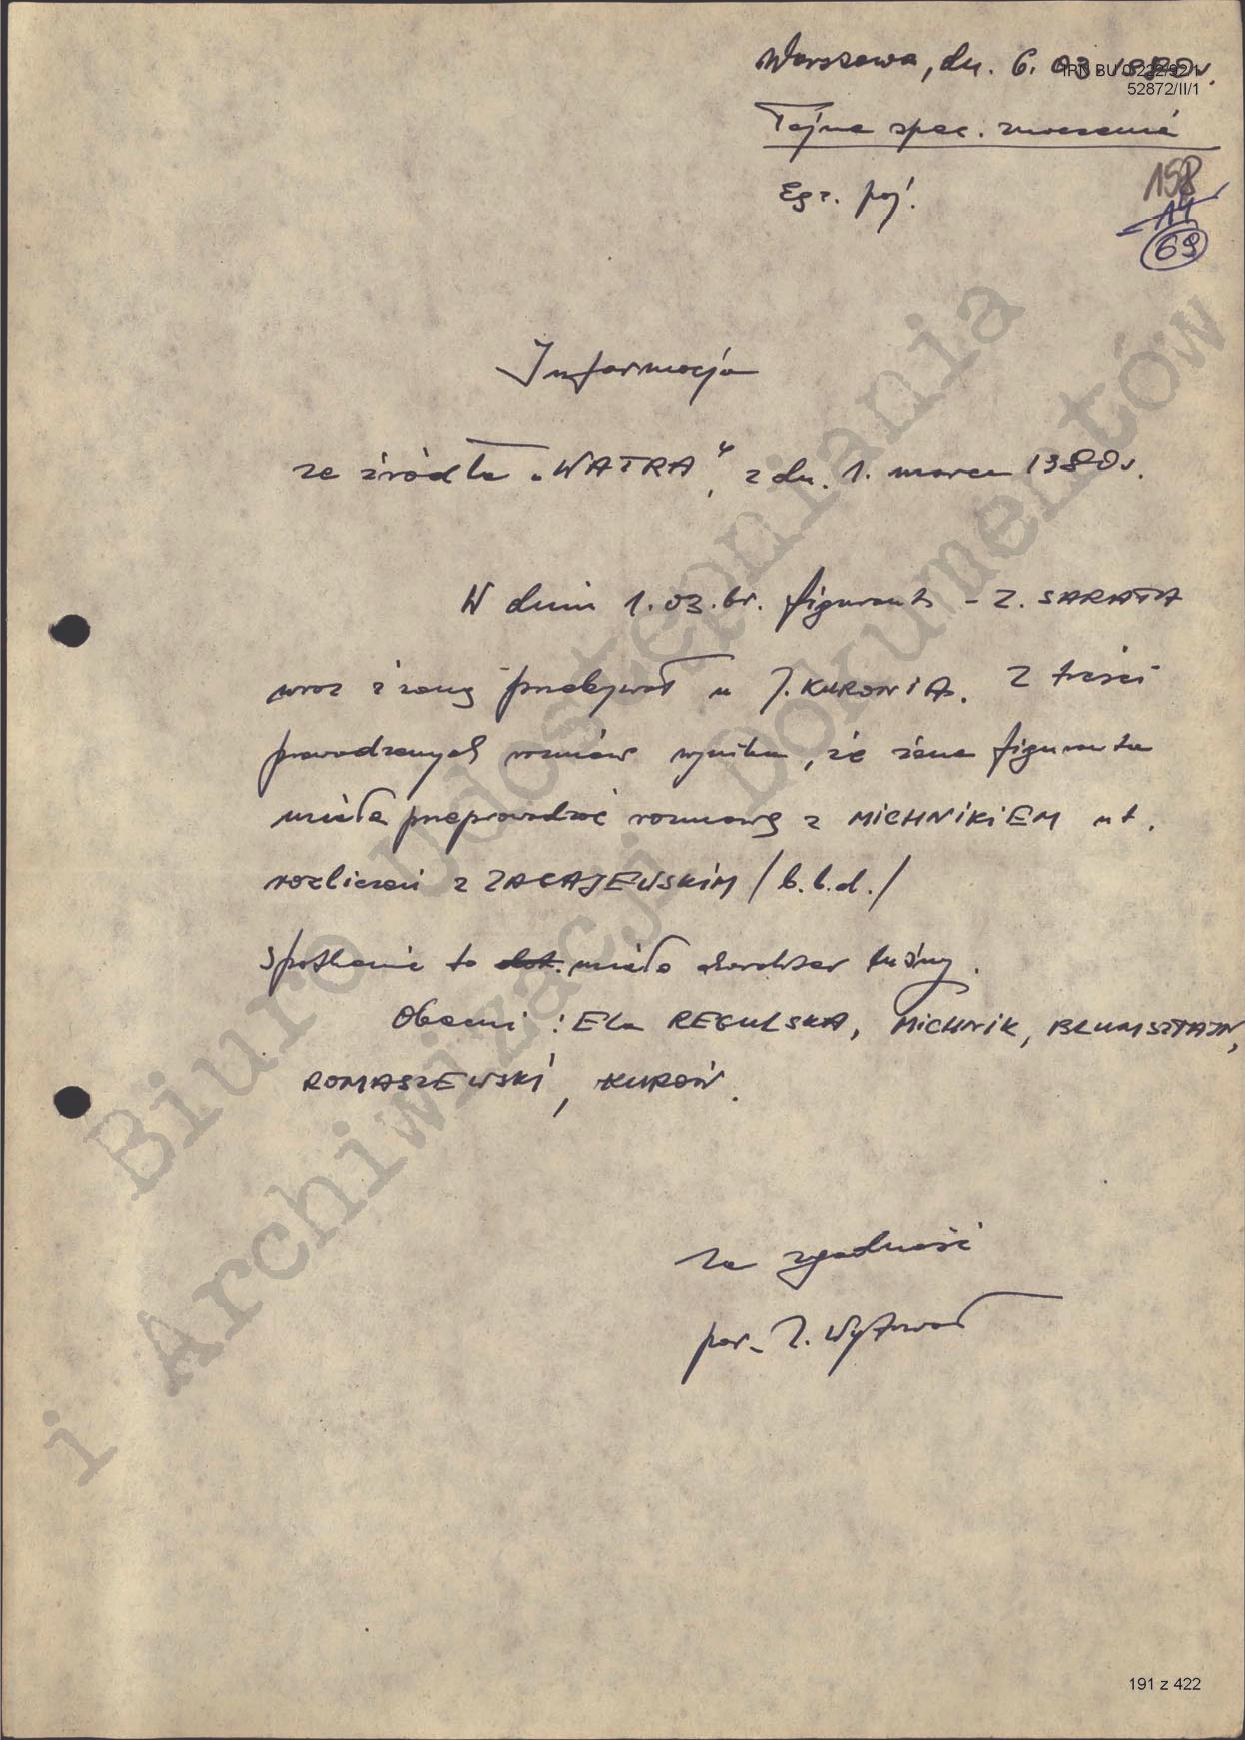 Warszawa, dn. 6. 03 1980 r.
IPN BU 0 222/92/1
52872/II/1
Tajne spec. znaczenia
Egz. poj.
158
14
69
Informacja
ze źródła "WATRA", z dn. 1. marca 1980 r.
W dniu 1.03.br. figurant - Z. SARATA
wraz z żoną przebywał u J. KURONIA. Z treści
prowadzonych rozmów wynika, że żona figuranta
miała przeprowadzić rozmowę z MICHNIKIEM nt.
rozliczeń z ZAGAJEWSKIM /b.b.d./
Spotkanie to miało charakter luźny.
Obecni : Ela REGULSKA, MICHNIK, BLUMSZTAJN,
ROMASZEWSKI, KUROŃ.
Za zgodność
por. Z.
Biuro Udostępniania
i Archiwizacji Dokumentów
191 z 422